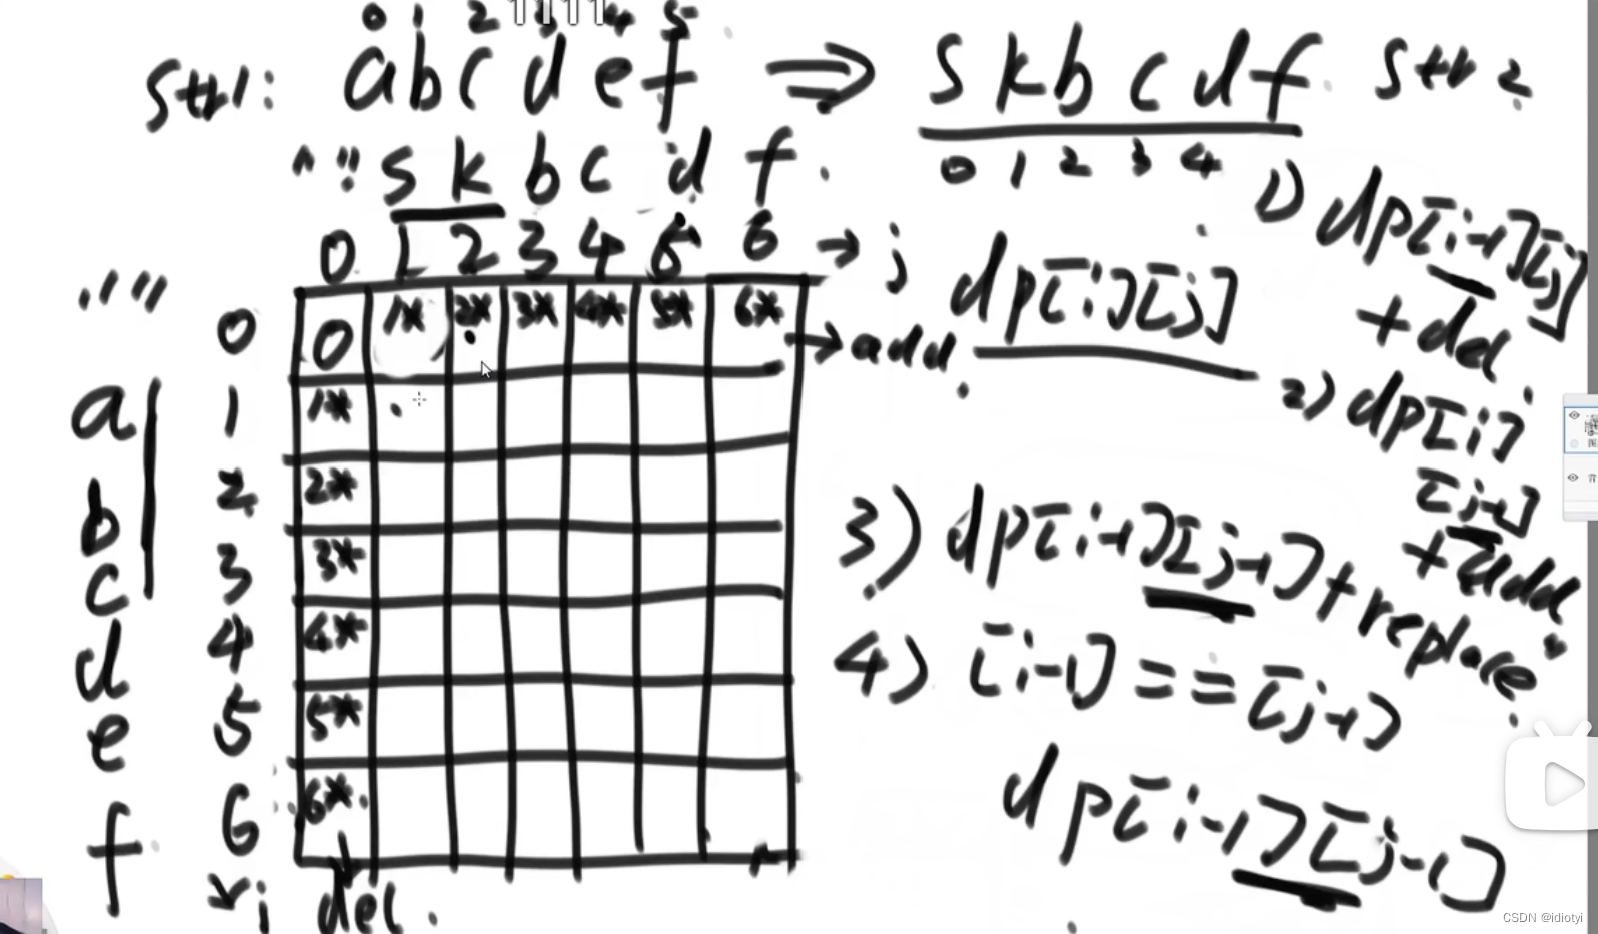 0 1 2 3 4 5
1111
str1: abcdef ⇒ skbcdf str2
0 1 2 3 4
"" s k b c d f
0 1 2 3 4 5 6 → j
""
0 0 1* 2* 3* 4* 5* 6* → add
a 1 1*
b 2 2*
c 3 3*
d 4 4*
e 5 5*
f 6 6*
↓ i del
dp[i][j]
1) dp[i-1][j]
+ del
2) dp[i]
[j-1]
+ add
3) dp[i-1][j-1] + replace
4) [i-1] == [j-1]
dp[i-1][j-1]
CSDN @idiotyi